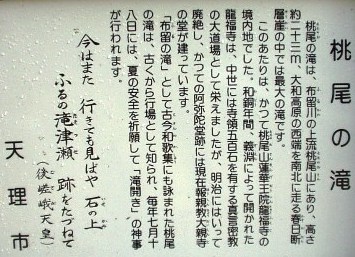 桃尾の滝
桃尾の滝は、布留川の上流桃尾山にあり、高さ
約二十三m、大和高原の西端を南北に走る春日断
層崖の中では最大の滝です。
このあたりは、かつて桃尾山蓮華王院龍福寺の
境内地でした。和銅年間、義淵によって開かれた
龍福寺は、中世には寺領五百石を有する真言密教
の大道場として栄えましたが、明治にはいって
廃絶し、かつての阿弥陀堂跡には現在報親教大親寺
の堂が建っています。
「布留の滝」として古今和歌集にも詠まれた桃尾
の滝は、古くから行場として知られ、毎年七月十
八日には、夏の安全を祈願して「滝開き」の神事
が行われます。
今はまた 行きても見ばや 石の上
ふるの滝津瀬 跡をたづねて
(後嵯峨天皇)
天理市